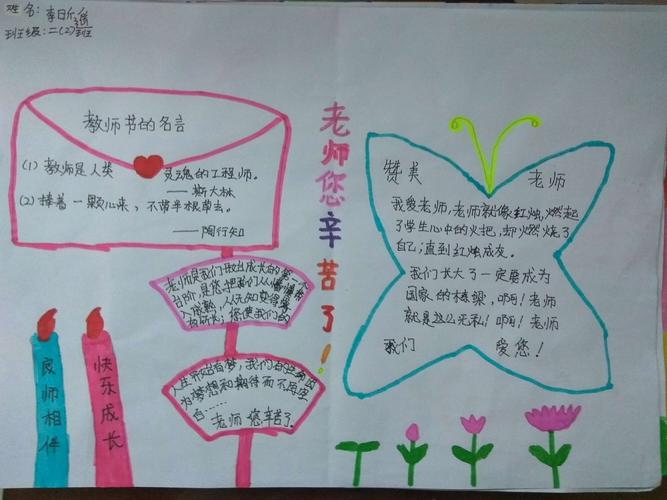 姓名:李日
班级:二(2)班
教师节的名言
(1)教师是人类 灵魂的工程师。
——斯大林
(2)捧着一颗心来,不带半根草去。
——陶行知
老师您辛苦了!
赞美 老师
我爱老师,老师就像红烛,燃起
了学生心中的火把,却燃烧了
自己;直到红烛成灰。
我们长大了一定要成为
国家的栋梁,啊!老师
就是这么无私!啊!老师
我们 爱您!
老师是我们踏出成长的第一个
台阶,是您把我们从懵懂带
入成熟,从无知变得
您使我们的
人生开始有梦,我们
为梦想和期待而不再空
白……
老师 您辛苦了。
良师相伴
快乐成长